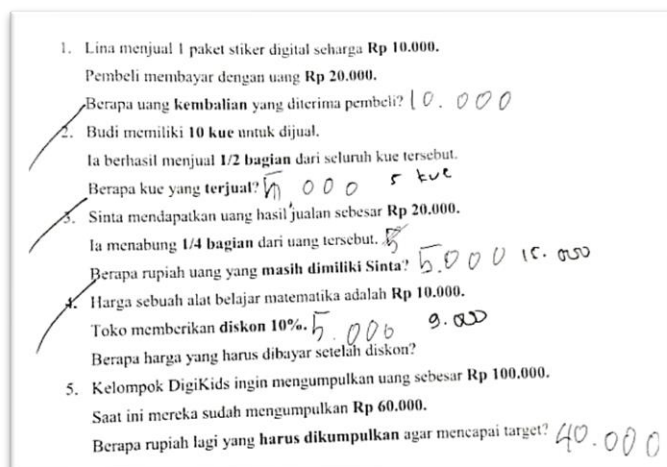 1. Lina menjual 1 paket stiker digital seharga Rp 10.000.
Pembeli membayar dengan uang Rp 20.000.
Berapa uang kembalian yang diterima pembeli? 10.000
2. Budi memiliki 10 kue untuk dijual.
Ia berhasil menjual 1/2 bagian dari seluruh kue tersebut.
Berapa kue yang terjual? 5 000 5 kue
3. Sinta mendapatkan uang hasil jualan sebesar Rp 20.000.
Ia menabung 1/4 bagian dari uang tersebut. 5
Berapa rupiah uang yang masih dimiliki Sinta? 5.000 15.000
4. Harga sebuah alat belajar matematika adalah Rp 10.000.
Toko memberikan diskon 10%. 5.000 9.000
Berapa harga yang harus dibayar setelah diskon?
5. Kelompok DigiKids ingin mengumpulkan uang sebesar Rp 100.000.
Saat ini mereka sudah mengumpulkan Rp 60.000.
Berapa rupiah lagi yang harus dikumpulkan agar mencapai target? 40.000